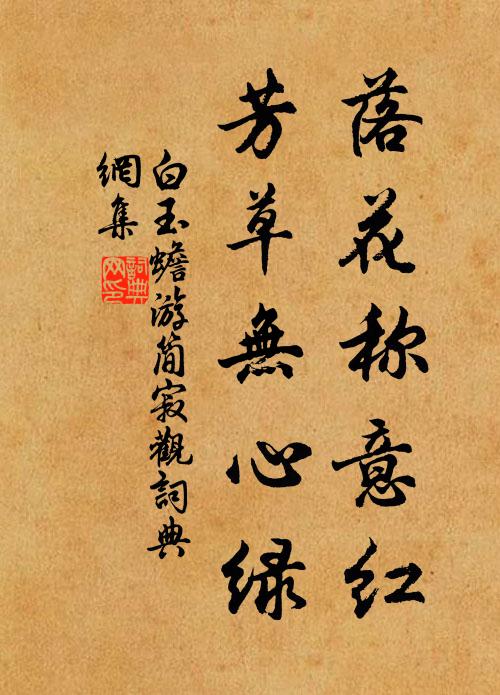 落花称意红
芳草無心绿
白玉蟾游簡寂觀詞典
網集
詞典
网印